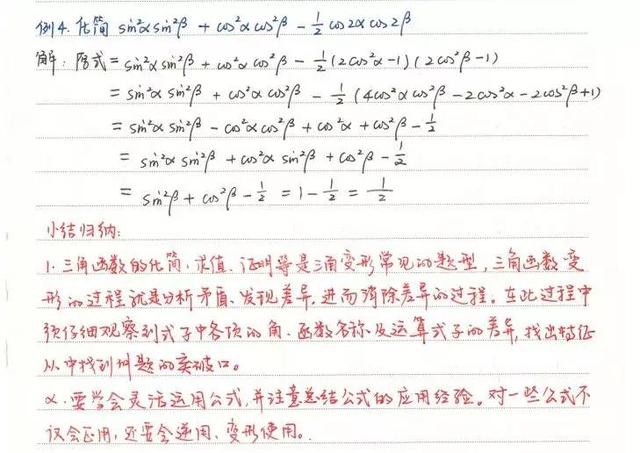 例4. 化简 sin²αsin²β + cos²αcos²β - 1/2 cos2αcos2β
解: 原式 = sin²αsin²β + cos²αcos²β - 1/2(2cos²α-1)(2cos²β-1)
= sin²αsin²β + cos²αcos²β - 1/2(4cos²αcos²β-2cos²α-2cos²β+1)
= sin²αsin²β - cos²αcos²β + cos²α + cos²β - 1/2
= sin²αsin²β + cos²αsin²β + cos²β - 1/2
= sin²β + cos²β - 1/2 = 1 - 1/2 = 1/2
小结归纳:
1. 三角函数的化简、求值、证明等是三角变形常见的题型, 三角函数变
形的过程就是分析矛盾、发现差异, 进而消除差异的过程。在此过程中
须仔细观察到式子中各项的角、函数名称及运算式子的差异, 找出特征
从中找到解题的突破口。
2. 要学会灵活运用公式, 并注意总结公式的应用经验。对一些公式不
仅会正用, 还要会逆用、变形使用。